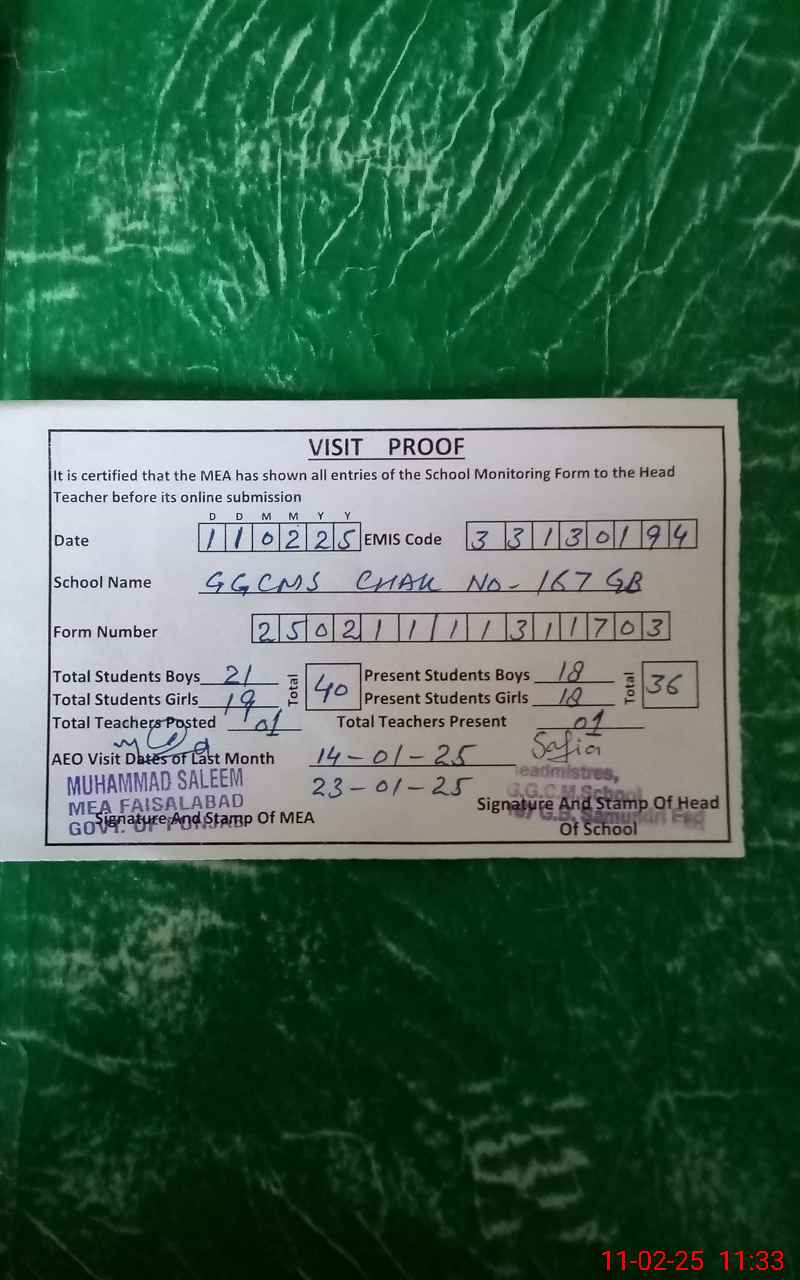 VISIT PROOF
It is certified that the MEA has shown all entries of the School Monitoring Form to the Head
Teacher before its online submission
D D M M Y Y
Date 1 1 0 2 2 5 EMIS Code 3 3 1 3 0 1 9 4
School Name GGCMS CHAK NO- 167 GB
Form Number 2 5 0 2 1 1 1 1 1 3 1 1 7 0 3
Total Students Boys 21 Total 40 Present Students Boys 18 Total 36
Total Students Girls 19 Present Students Girls 18
Total Teachers Posted 01 Total Teachers Present 01
AEO Visit Dates of Last Month 14-01-25 Safia
23-01-25
MUHAMMAD SALEEM
MEA FAISALABAD
GOVT. OF PUNJAB
Signature And Stamp Of MEA
eadmistres,
G.G.C.M.School
167 G.B. Samundri Fsd
Signature And Stamp Of Head
Of School
11-02-25 11:33